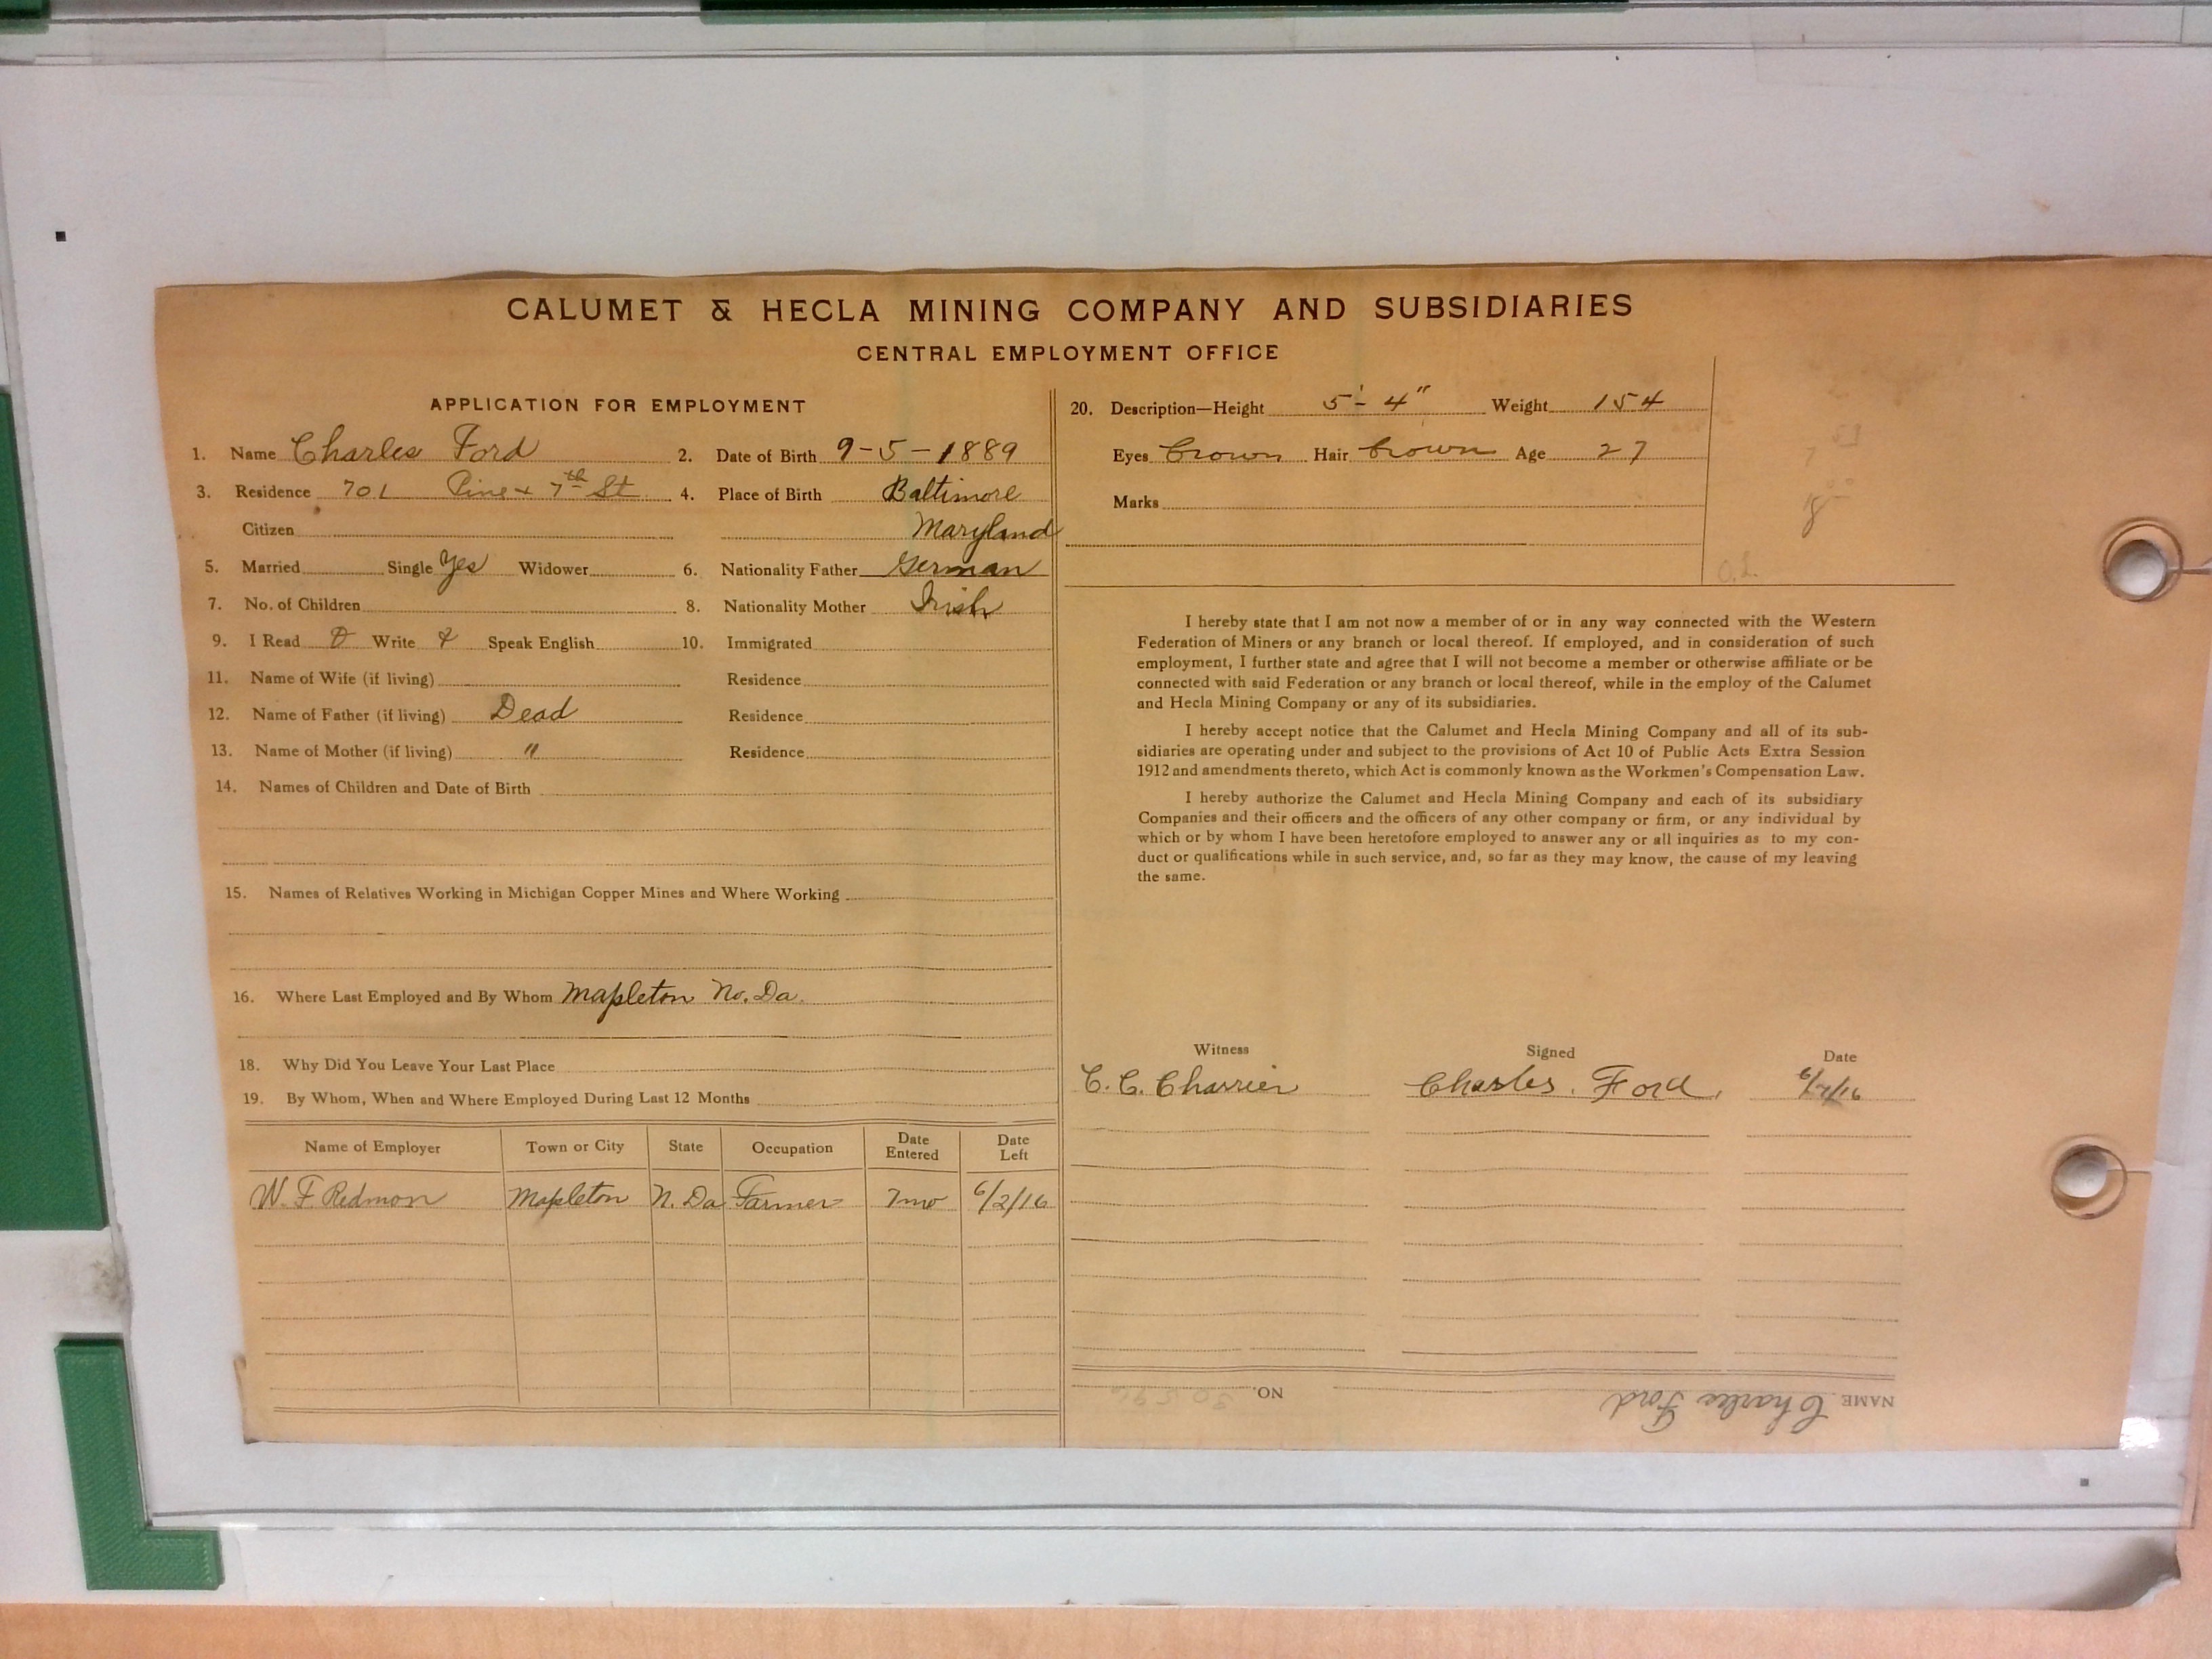 CALUMET & HECLA MINING COMPANY AND SUBSIDIARIES
CENTRAL EMPLOYMENT OFFICE
APPLICATION FOR EMPLOYMENT
1. Name Charles Ford 2. Date of Birth 9-5-1889
3. Residence 701 Pine & 7th St 4. Place of Birth Baltimore
Citizen Maryland
5. Married Single Yes Widower 6. Nationality Father German
7. No. of Children 8. Nationality Mother Irish
9. I Read Write Speak English 10. Immigrated
11. Name of Wife (if living) Residence
12. Name of Father (if living) Dead Residence
13. Name of Mother (if living) " Residence
14. Names of Children and Date of Birth
15. Names of Relatives Working in Michigan Copper Mines and Where Working
16. Where Last Employed and By Whom Mapleton No. Da.
18. Why Did You Leave Your Last Place
19. By Whom, When and Where Employed During Last 12 Months
Name of Employer Town or City State Occupation Date Entered Date Left
W. F Redmon Mapleton N. Da Farmer 7mo 6/2/16
20. Description—Height 5'-4" Weight 154
Eyes Brown Hair brown Age 27
Marks
O.L.
I hereby state that I am not now a member of or in any way connected with the Western
Federation of Miners or any branch or local thereof. If employed, and in consideration of such
employment, I further state and agree that I will not become a member or otherwise affiliate or be
connected with said Federation or any branch or local thereof, while in the employ of the Calumet
and Hecla Mining Company or any of its subsidiaries.
I hereby accept notice that the Calumet and Hecla Mining Company and all of its sub-
sidiaries are operating under and subject to the provisions of Act 10 of Public Acts Extra Session
1912 and amendments thereto, which Act is commonly known as the Workmen's Compensation Law.
I hereby authorize the Calumet and Hecla Mining Company and each of its subsidiary
Companies and their officers and the officers of any other company or firm, or any individual by
which or by whom I have been heretofore employed to answer any or all inquiries as to my con-
duct or qualifications while in such service, and, so far as they may know, the cause of my leaving
the same.
Witness Signed Date
C. C. Charrier Charles. Ford.
NAME Charlie Ford NO.